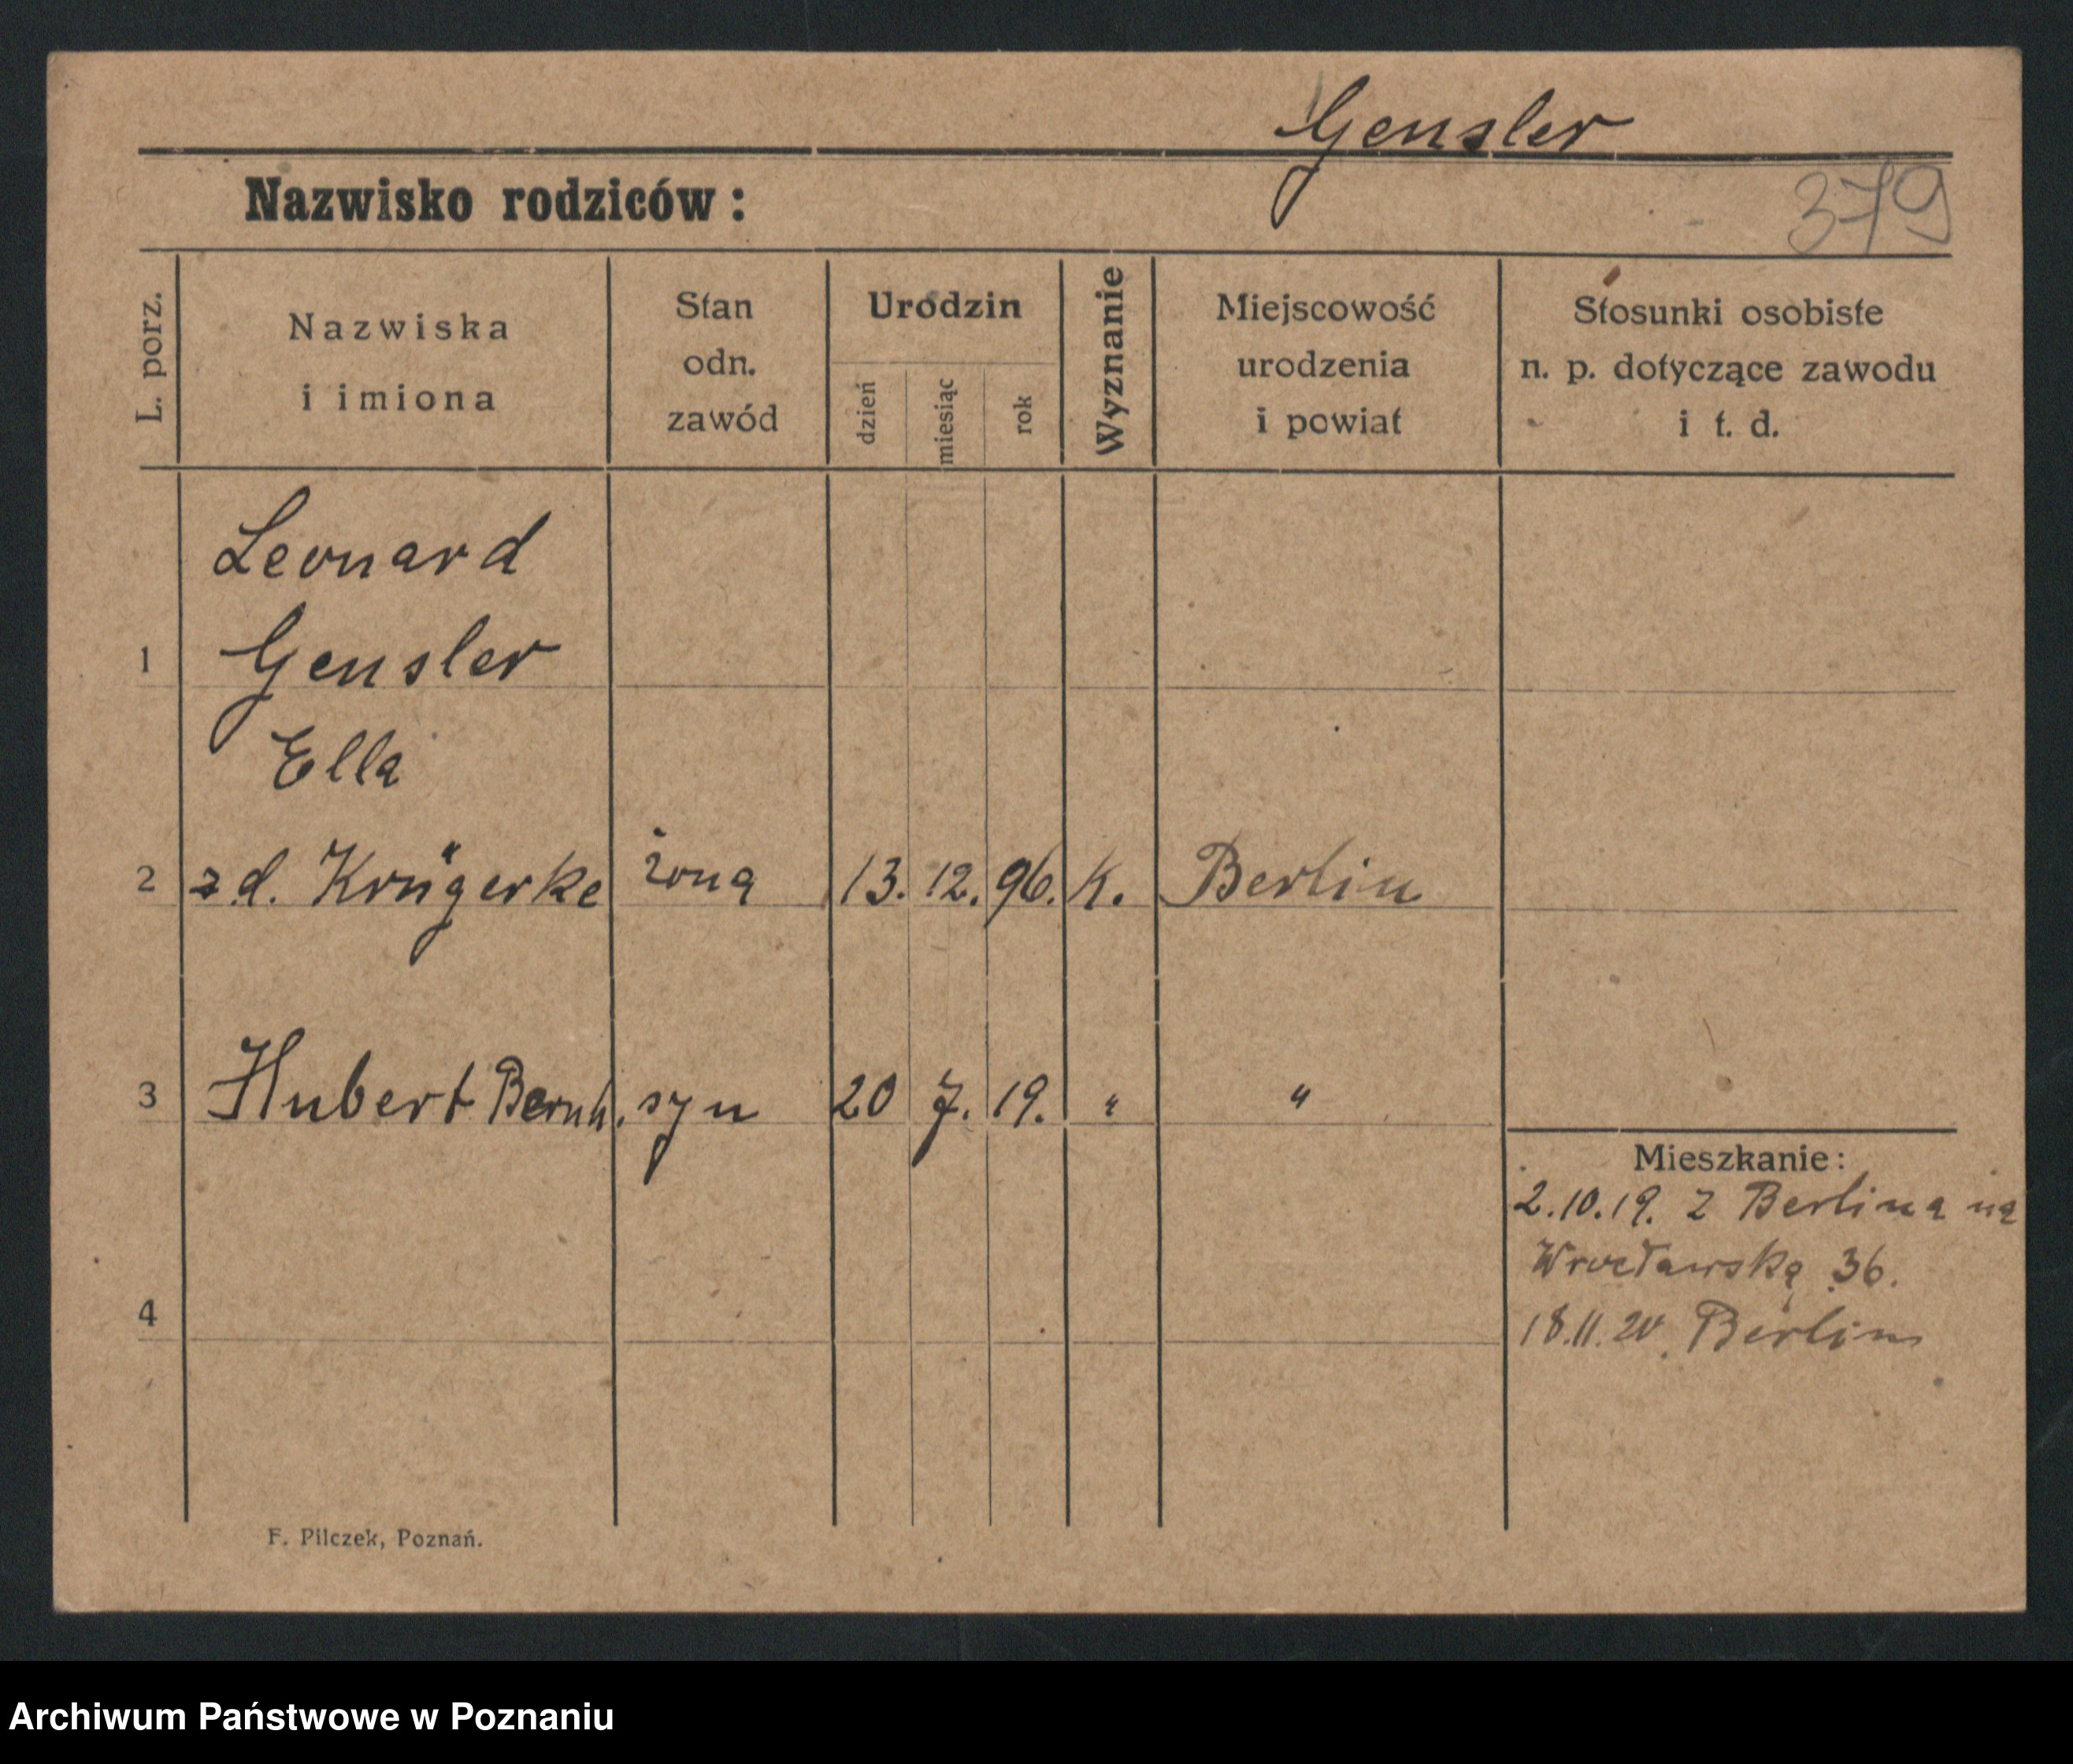 Gensler
Nazwisko rodziców:
379
L. porz.
Nazwiska
i imiona
Stan
odn.
zawód
Urodzin
dzień
miesiąc
rok
Wyznanie
Miejscowość
urodzenia
i powiat
Stosunki osobiste
n. p. dotyczące zawodu
i t. d.
Leonard
1 Gensler
Ella
2 zd. Krügerke żona 13. 12. 96. K. Berlin
3 Hubert Bernh. syn 20 7. 19. " "
Mieszkanie:
2.10.19. Z Berlina na
Wrocławską 36.
4
18.11.20. Berlin
F. Pilczek, Poznań.
Archiwum Państwowe w Poznaniu